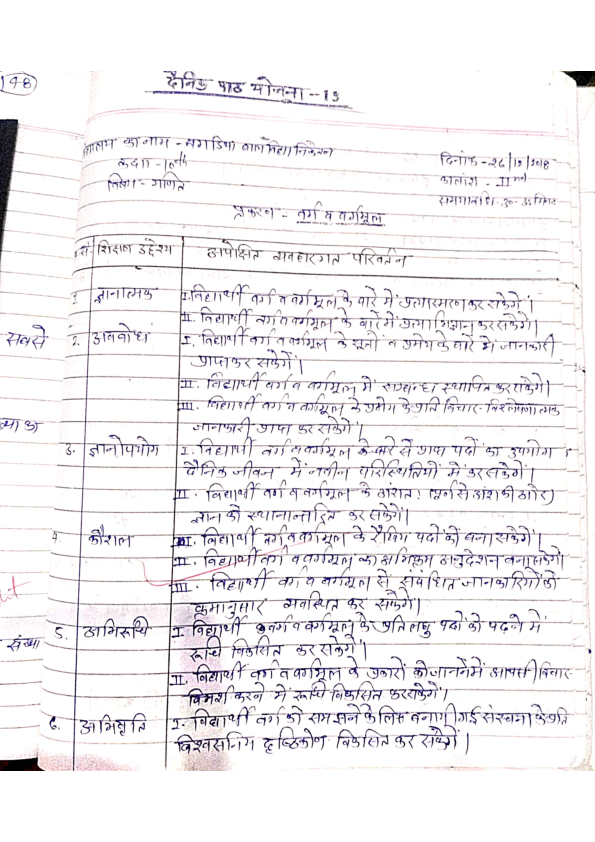 148
दैनिक पाठ योजना - 13
का नाम - बाल विद्या निकेतन
कक्षा - 10th
दिनांक - 26/12/2018
विषय - गणित
कालांश - IInd
प्रकरण - वर्ग व वर्गमूल
सं. शिक्षण उद्देश्य अपेक्षित व्यवहारगत परिवर्तन
1. ज्ञानात्मक I. विद्यार्थी वर्ग व वर्गमूल के बारे में प्रत्यास्मरण कर सकेंगे।
II. विद्यार्थी वर्ग व वर्गमूल के बारे में प्रत्याभिज्ञान कर सकेंगे।
सबसे
2. अवबोध I. विद्यार्थी वर्ग व वर्गमूल के सूत्रो व प्रमेय के बारे में जानकारी
प्राप्त कर सकेंगे।
II. विद्यार्थी वर्ग व वर्गमूल में सम्बन्ध स्थापित कर सकेंगे।
III. विद्यार्थी वर्ग व वर्गमूल के प्रमेय के प्रति विचार-विश्लेषणात्मक
जानकारी प्राप्त कर सकेंगे।
3. ज्ञानोपयोग I. विद्यार्थी वर्ग व वर्गमूल के बारे से प्राप्त पदों का उपयोग
दैनिक जीवन में नवीन परिस्थितियों में कर सकेंगे।
II. विद्यार्थी वर्ग व वर्गमूल के अंशत: (पूर्ण से अंश की ओर)
ज्ञान को स्थानान्तरित कर सकेंगे।
4. कौशल I. विद्यार्थी वर्ग व वर्गमूल के पदों को बना सकेंगे।
II. विद्यार्थी वर्ग व वर्गमूल का अभिक्रम अनुदेशन बना सकेंगे।
III. विद्यार्थी वर्ग व वर्गमूल से संबंधित जानकारियों को
क्रमानुसार व्यवस्थित कर सकेंगे।
संख्या
5. अभिरूचि I. विद्यार्थी वर्ग व वर्गमूल के प्रति लघु पदों को पढ़ने में
रूचि विकसित कर सकेंगे।
II. विद्यार्थी वर्ग व वर्गमूल के प्रकारों को जानने में आपसी विचार
विमर्श करने में रूचि विकसित कर सकेंगे।
6. अभिवृति I. विद्यार्थी वर्ग को समझने के लिए बनायी गई संरचना के प्रति
दृष्टिकोण विकसित कर सकेंगे।